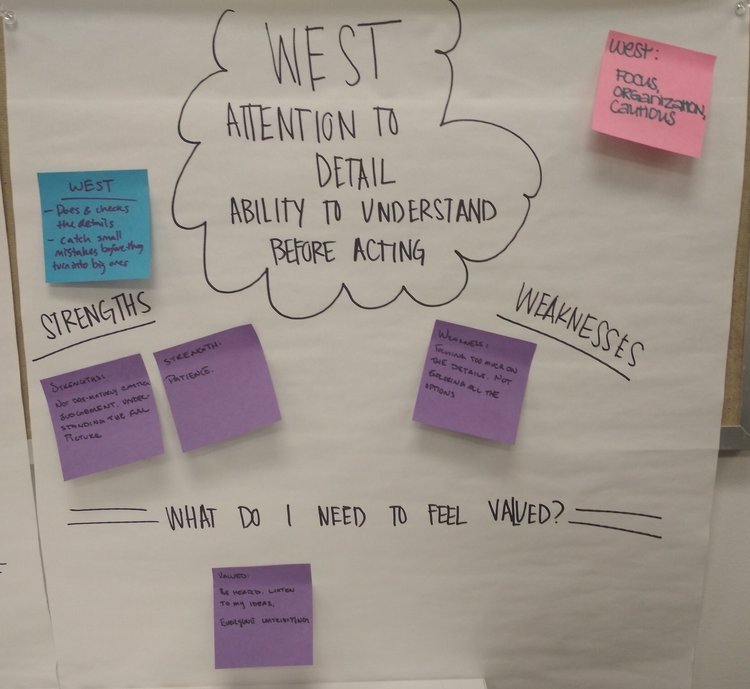 WEST
ATTENTION TO
DETAIL
ABILITY TO UNDERSTAND
BEFORE ACTING
West:
FOCUS,
ORGANIZATION,
CAUTIOUS
WEST
- Does & checks
the details
- catch small
mistakes before they
turn into big ones
STRENGTHS
STRENGTHS:
NOT PRE-MATURELY
JUDGEMENT, UNDER-
STANDING THE FULL
PICTURE
STRENGTH:
PATIENCE.
WEAKNESSES
WEAKNESS:
FOCUSING TOO MUCH ON
THE DETAILS. NOT
EXPLORING ALL THE
OPTIONS
WHAT DO I NEED TO FEEL VALUED?
VALUED:
BE HEARD. LISTEN
TO MY IDEAS,
EVERYONE CONTRIBUTING